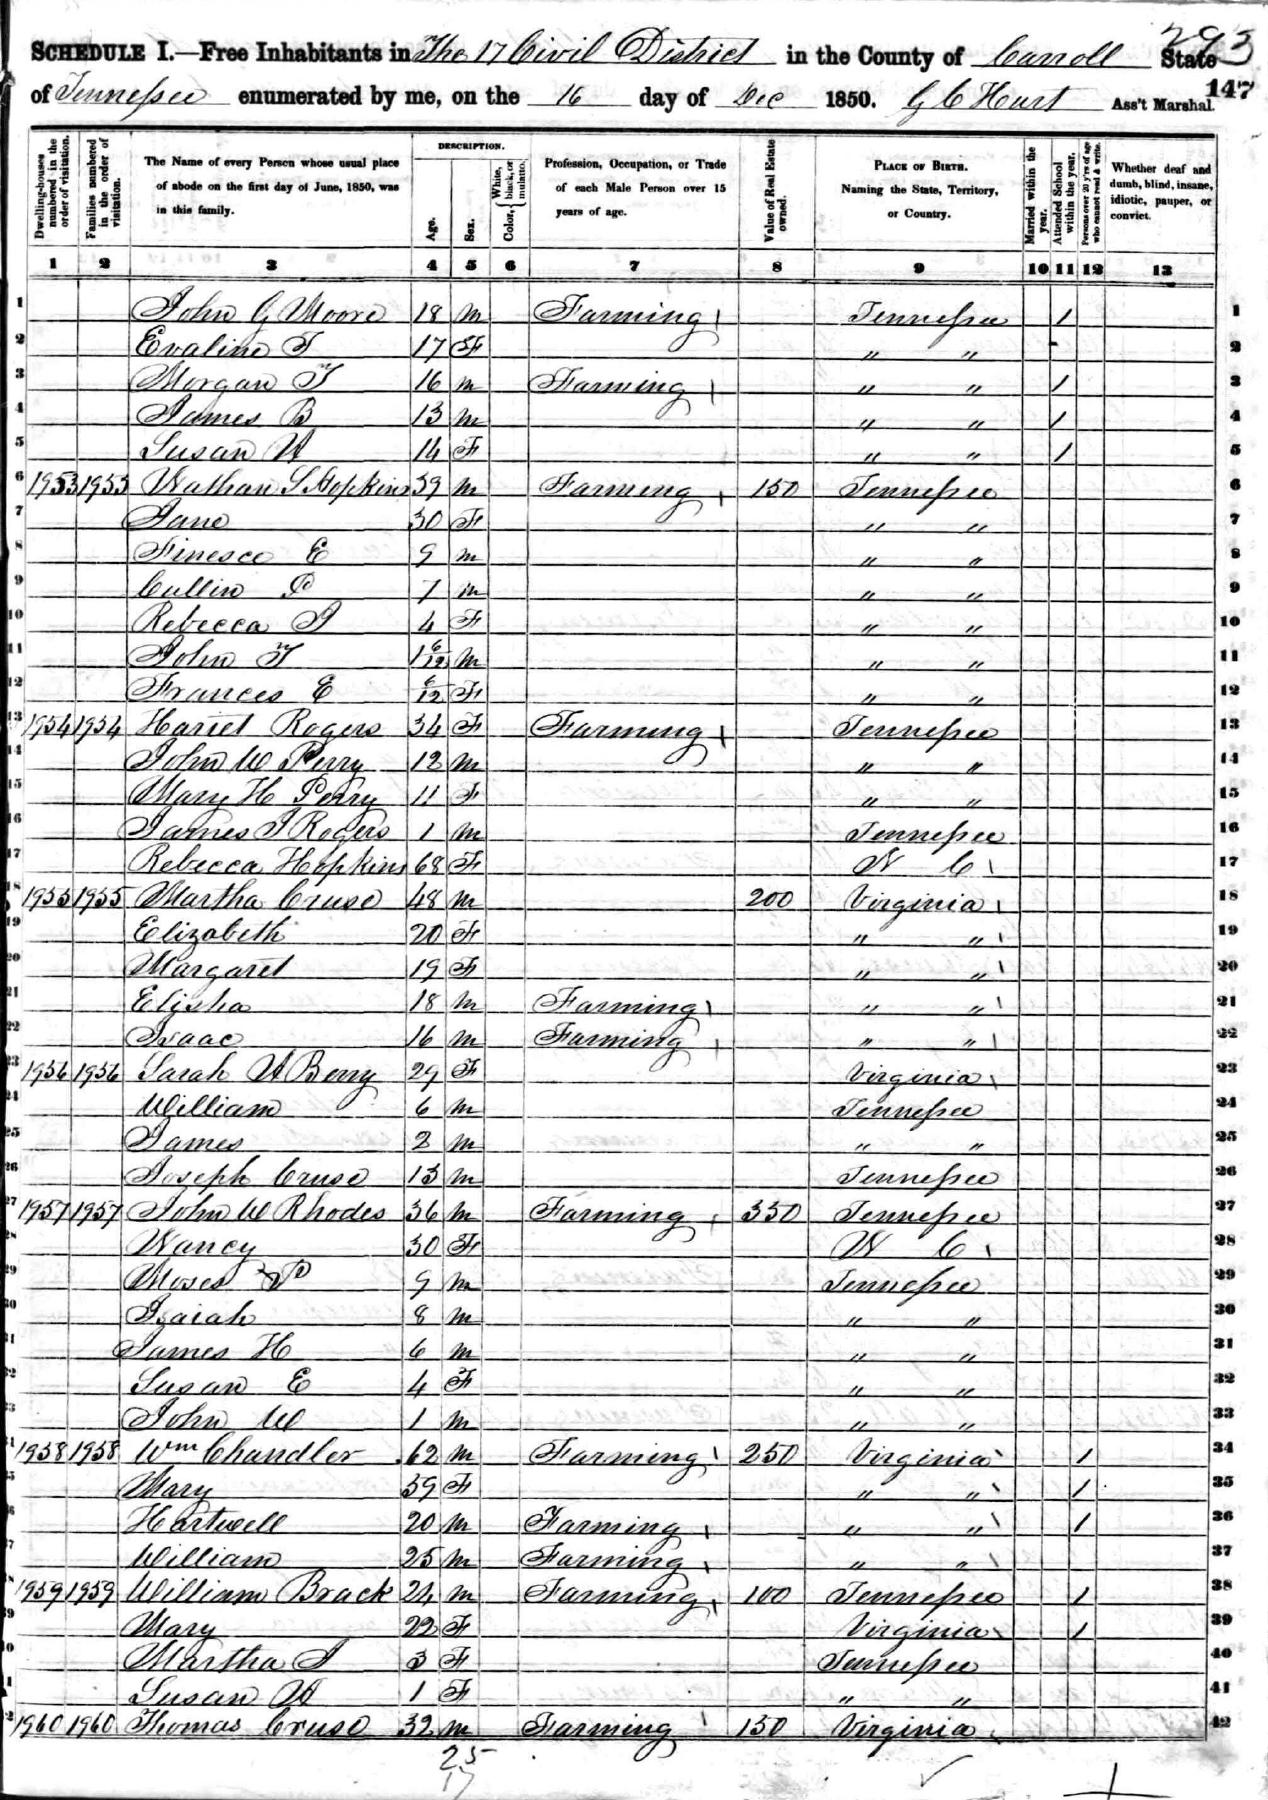 293
SCHEDULE I.—Free Inhabitants in The 17 Civil District in the County of Carroll State
of Tennessee enumerated by me, on the 16 day of Dec 1850. G C Hurt Ass't Marshal.
147
Dwelling-houses numbered in the order of visitation.
Families numbered in the order of visitation.
The Name of every Person whose usual place of abode on the first day of June, 1850, was in this family.
DESCRIPTION.
Age.
Sex.
Color, { White, black, or mulatto.
Profession, Occupation, or Trade of each Male Person over 15 years of age.
Value of Real Estate owned.
PLACE OF BIRTH. Naming the State, Territory, or Country.
Married within the year.
Attended School within the year.
Persons over 20 y'rs of age who cannot read & write.
Whether deaf and dumb, blind, insane, idiotic, pauper, or convict.
1 2 3 4 5 6 7 8 9 10 11 12 13
1 John G Moore 18 m Farming Tennessee 1 1
2 Evaline T 17 F " " 2
3 Morgan T 16 m Farming " " 1 3
4 James B 13 m " " 1 4
5 Susan A 14 F " " 1 5
6 1953 1953 Nathan S Hopkins 39 m Farming 150 Tennessee 6
7 Jane 30 F " " 7
8 Finesco E 9 m " " 8
9 Cullin P 7 m " " 9
10 Rebecca J 4 F " " 10
11 John T 1 6/12 m " " 11
12 Frances E 6/12 F " " 12
13 1954 1954 Hariet Rogers 34 F Farming Tennessee 13
14 John W Perry 12 m " " 14
15 Mary H Perry 11 F " " 15
16 James J Rogers 1 m Tennessee 16
17 Rebecca Hopkins 68 F N C 17
18 1955 1955 Martha Cruse 48 m 200 Virginia 18
19 Elizabeth 20 F " " 19
20 Margaret 19 F " " 20
21 Elisha 18 m Farming " " 21
22 Isaac 16 m Farming " " 22
23 1956 1956 Sarah A Berry 29 F Virginia 23
24 William 6 m Tennessee 24
25 James 2 m " " 25
26 Joseph Cruse 13 m Tennessee 26
27 1957 1957 John W Rhodes 36 m Farming 350 Tennessee 27
28 Nancy 30 F N C 28
29 Moses P 9 m Tennessee 29
30 Isaiah 8 m " " 30
31 James H 6 m " " 31
32 Susan E 4 F " " 32
33 John W 1 m " " 33
34 1958 1958 Wm Chandler 62 m Farming 250 Virginia 1 34
35 Mary 59 F " " 1 35
36 Hartwell 20 m Farming " " 1 36
37 William 25 m Farming " " 37
38 1959 1959 William Brack 24 m Farming 100 Tennessee 1 38
39 Mary 22 F Virginia 1 39
40 Martha J 3 F Tennessee 40
41 Susan A 1 F " " 41
42 1960 1960 Thomas Cruse 32 m Farming 150 Virginia 42
25
17